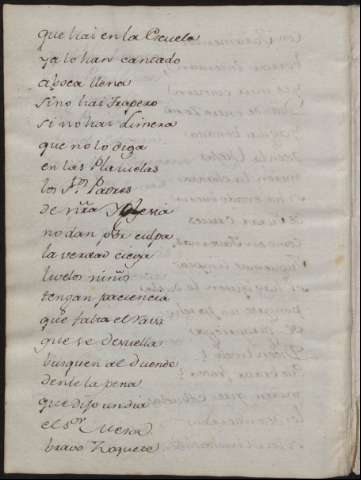 que hai en la Escuela
ya lo han cantado
aboca llena
sino hai Trapero
si no hai
que no lo diga
en las Plazuelas
los S.tos Padres
de nra Yglesia
no dan por culpa
la verdad ciega
los niños
tengan paciencia
que falta el
que se desuella
busquen al Duende
denle la pena
que dijo un dia
el S.or
bravo Zoquete